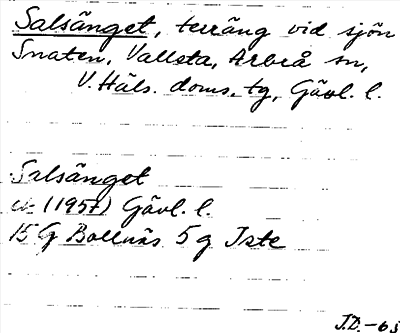 Salsänget, terräng vid sjön
Snaten, Vallsta, Arbrå sn,
V. Häls. doms. tg, Gävl. l.
Salsänget
ek (1957) Gävl. l.
15 G Bollnäs 5 g Iste
J.D. -63